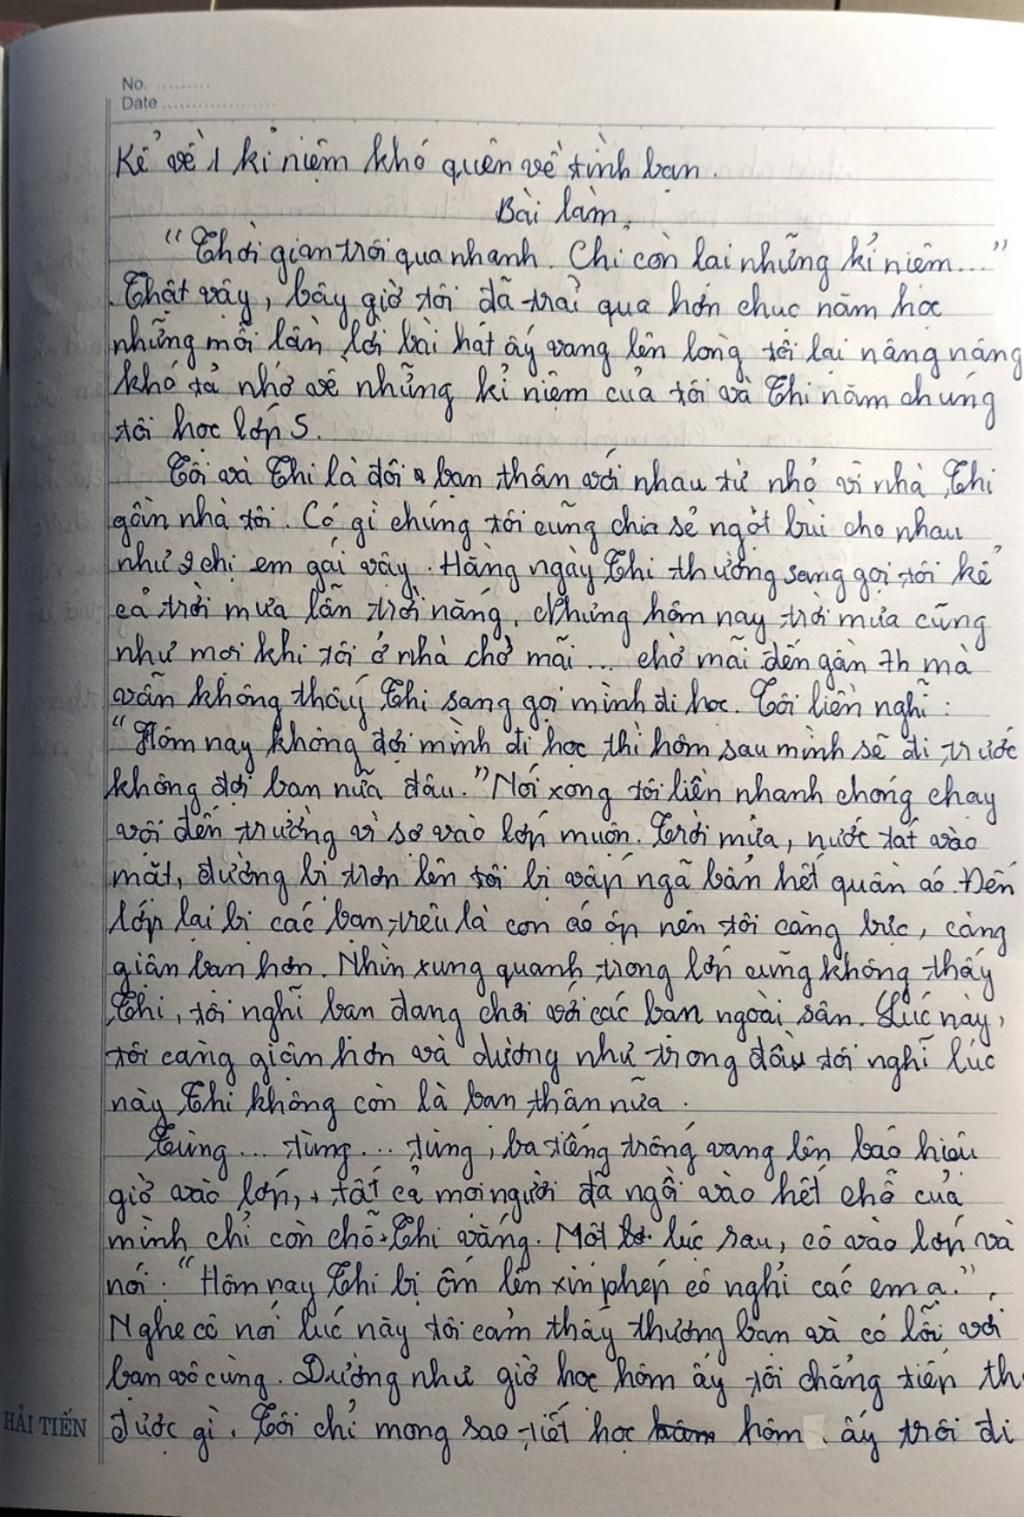 No. ..........
Date ....................
Kể về 1 kỉ niệm khó quên về tình bạn.
Bài làm.
"Thời gian trôi qua nhanh. Chỉ còn lại những kỉ niệm..."
Thật vậy, bây giờ tôi đã trải qua hơn chục năm học
những mỗi lần lời bài hát ấy vang lên lòng tôi lại nâng nâng
khó tả nhớ về những kỉ niệm của tôi và Thi năm chúng
tôi học lớp 5.
Tôi và Thi là đôi bạn thân với nhau từ nhỏ vì nhà Thi
gần nhà tôi. Có gì chúng tôi cũng chia sẻ ngọt bùi cho nhau
như 2 chị em gái vậy. Hằng ngày Thi thường sang gọi tôi kể
cả trời mưa lẫn trời nắng. Nhưng hôm nay trời mưa cũng
như mọi khi tôi ở nhà chờ mãi... chờ mãi đến gần 7h mà
vẫn không thấy Thi sang gọi mình đi học. Tôi liền nghĩ:
"Hôm nay không đợi mình đi học thì hôm sau mình sẽ đi trước
không đợi bạn nữa đâu." Nói xong tôi liền nhanh chóng chạy
vội đến trường vì sợ vào lớp muộn. Trời mưa, nước tát vào
mặt, đường bị trơn lên tôi bị vấp ngã bẩn hết quần áo. Đến
lớp lại bị các bạn trêu là con áo ộp nên tôi càng bực, càng
giận bạn hơn. Nhìn xung quanh trong lớp cũng không thấy
Thi, tôi nghĩ bạn đang chơi với các bạn ngoài sân. Lúc này,
tôi càng giận hơn và dường như trong đầu tôi nghĩ lúc
này Thi không còn là bạn thân nữa.
Tùng... tùng... tùng, ba tiếng trống vang lên báo hiệu
giờ vào lớp, tất cả mọi người đã ngồi vào hết chỗ của
mình chỉ còn chỗ Thi vắng. Một lúc sau, cô vào lớp và
nói: "Hôm nay Thi bị ốm lên xin phép cô nghỉ các em ạ."
Nghe cô nói lúc này tôi cảm thấy thương bạn và có lỗi với
bạn vô cùng. Dường như giờ học hôm ấy tôi chẳng tiếp th
được gì. Tôi chỉ mong sao tiết học hôm ấy trôi đi
HẢI TIẾN